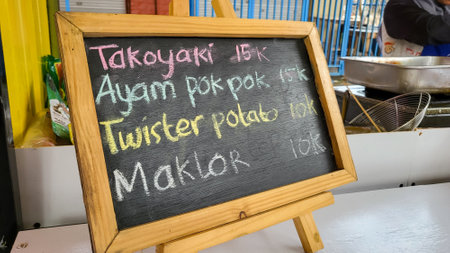 Takoyaki 15k
Ayam pok pok 15k
Twister potato 10k
MakLOR 10k